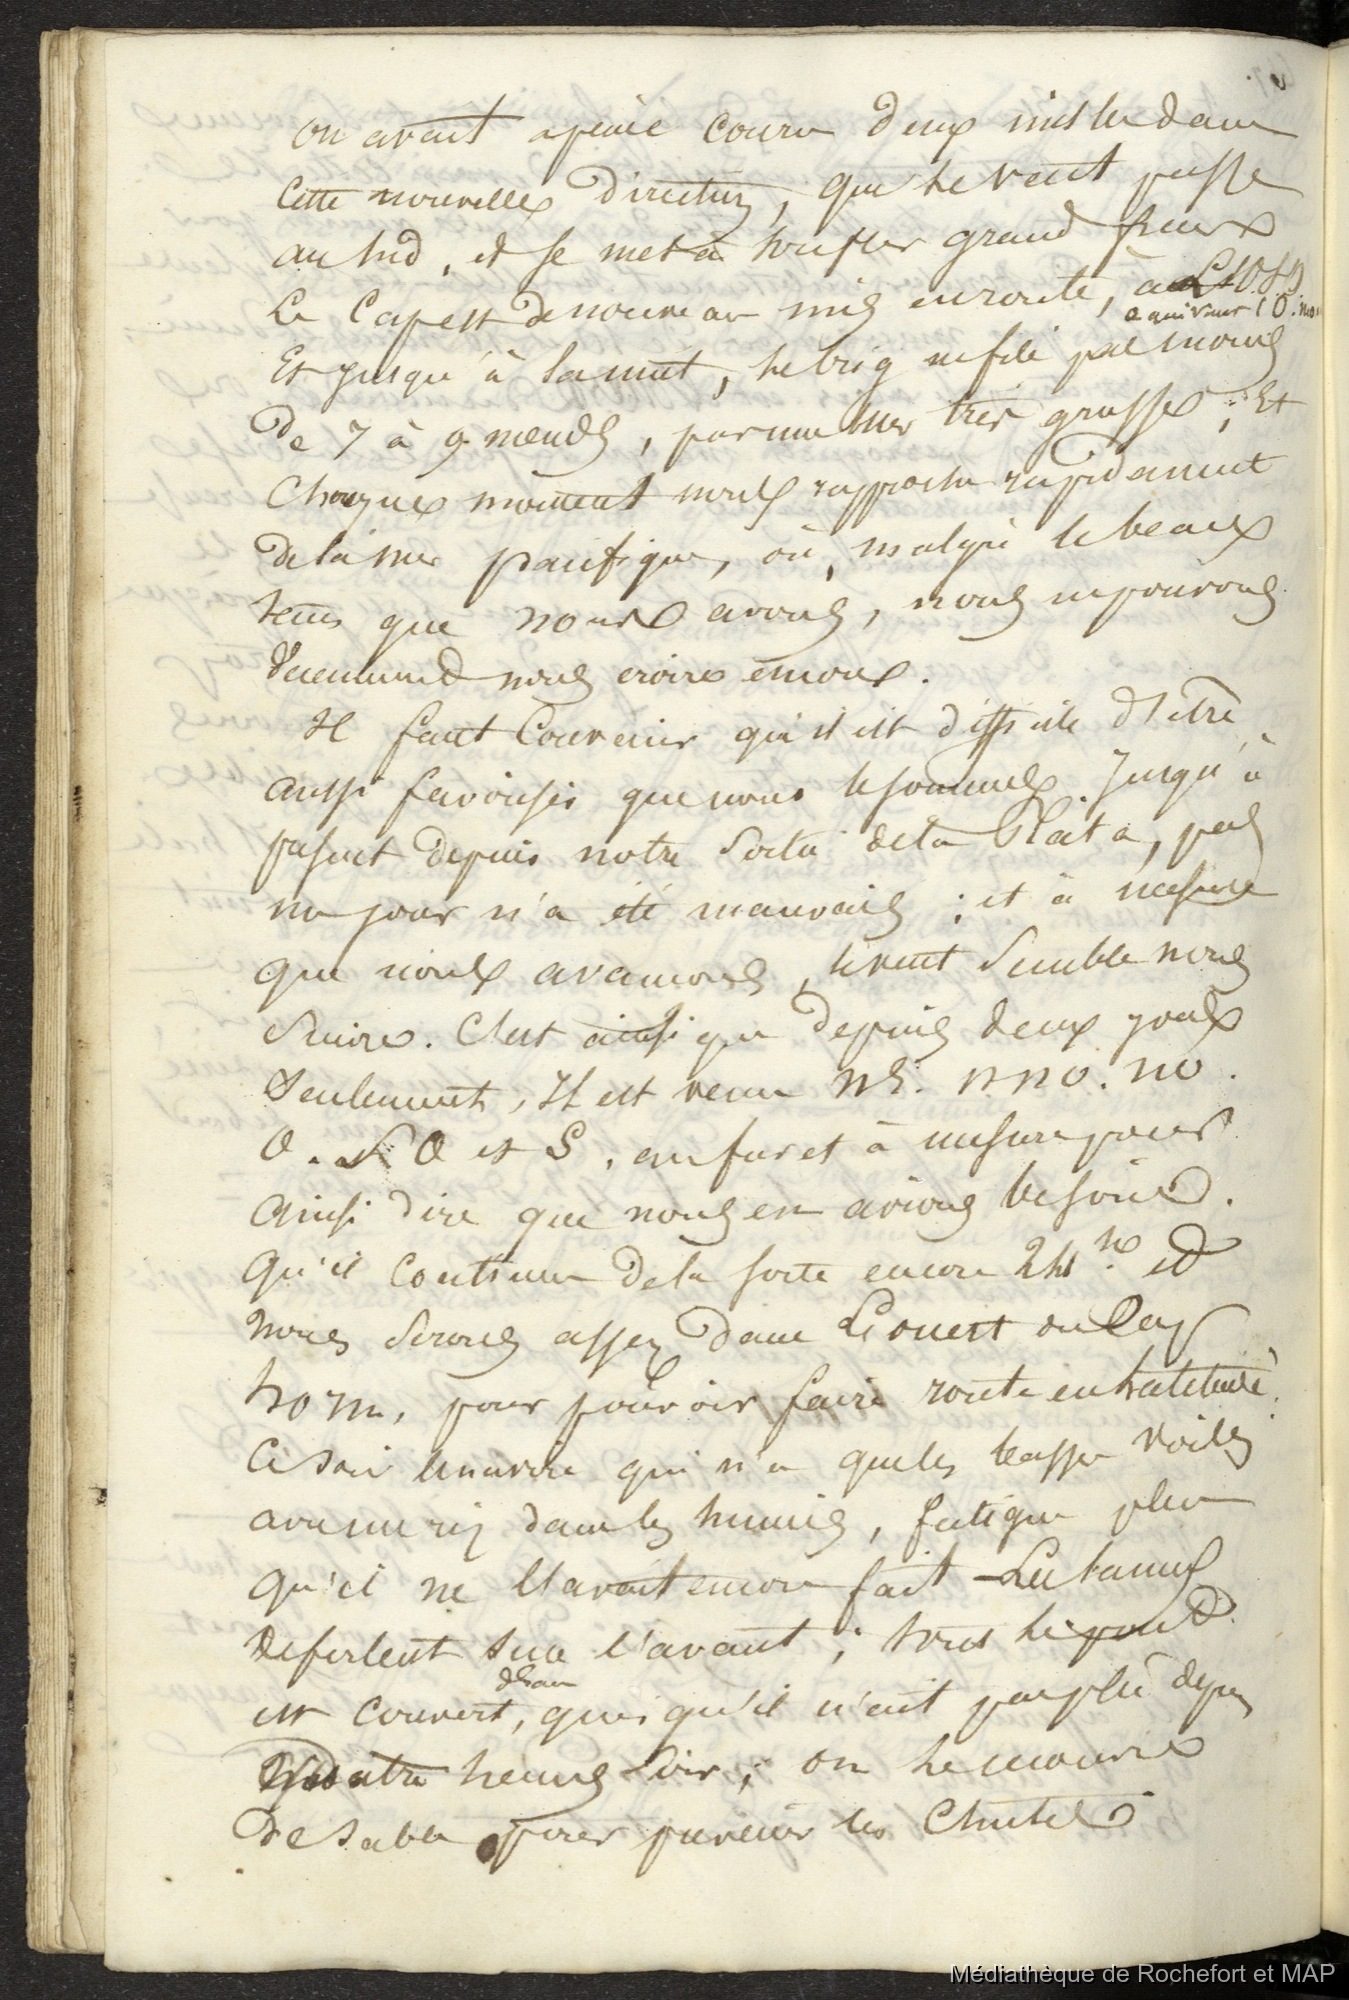 on avait apeine couru deux milles dans
Cette nouvelle direction, que le vent passe
au sud, et se met à souffler grand frais
Le Cap est de nouveau mis en route, à
Et jusqu'à la nuit, le brig ne file pas moins
De 7 à 9 nœuds, par une mer très grosse ; Et
Chaque moment nous rapproche rapidement
de la mer pacifique, où, malgré le beau
tems que nous avons, nous ne pouvons
nous croire encore.
Il faut Convenir qu'il est difficile d'être
aussi favorisés que nous le sommes. Jusqu'à
présent depuis notre sortie de la Plata, pas
un jour n'a été mauvais ; et à mesure
que nous avancons, le vent semble nous
Suivre. C'est ainsi que depuis deux jours
Seulement, Il est venu NE. NNO. NO.
O. SO et S, au fur et à mesure pour
ainsi dire que nous en avions besoin.
Qu'il continue de la sorte encore 24 h. et
Nous serons assez dans L'ouest du Cap
horn, pour pouvoir faire route en latitude.
Ce soir le navire qui n'a que les basses voiles
avec un ris dans les huniers, fatigue plus
qu'il ne l'avait encore fait Les lames
deferlent sur l'avant ; tout le pont
est Couvert d'eau, quoiqu'il n'ait pas plu depuis
quatre heures soir ; on le couvre
de sable pour prévenir les Chutes
Médiathèque de Rochefort et MAP